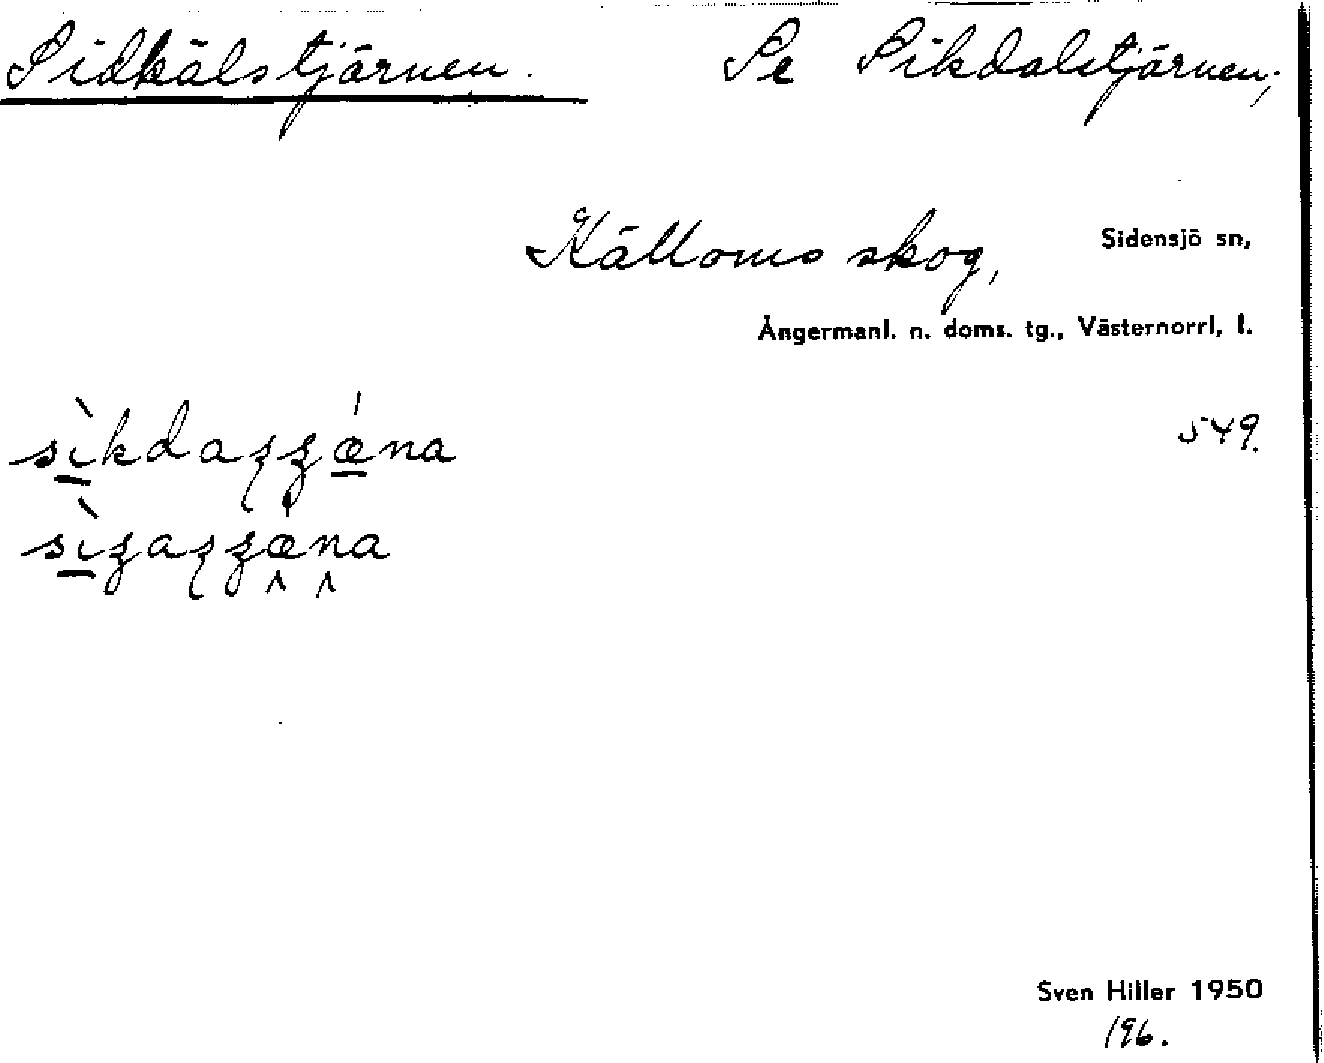 Sidkälstjärnen. Se Sikdalstjärnen,
Källoms skog, Sidensjö sn,
Ångermanl. n. doms. tg., Västernorrl, l.
549.
Sven Hiller 1950
196.